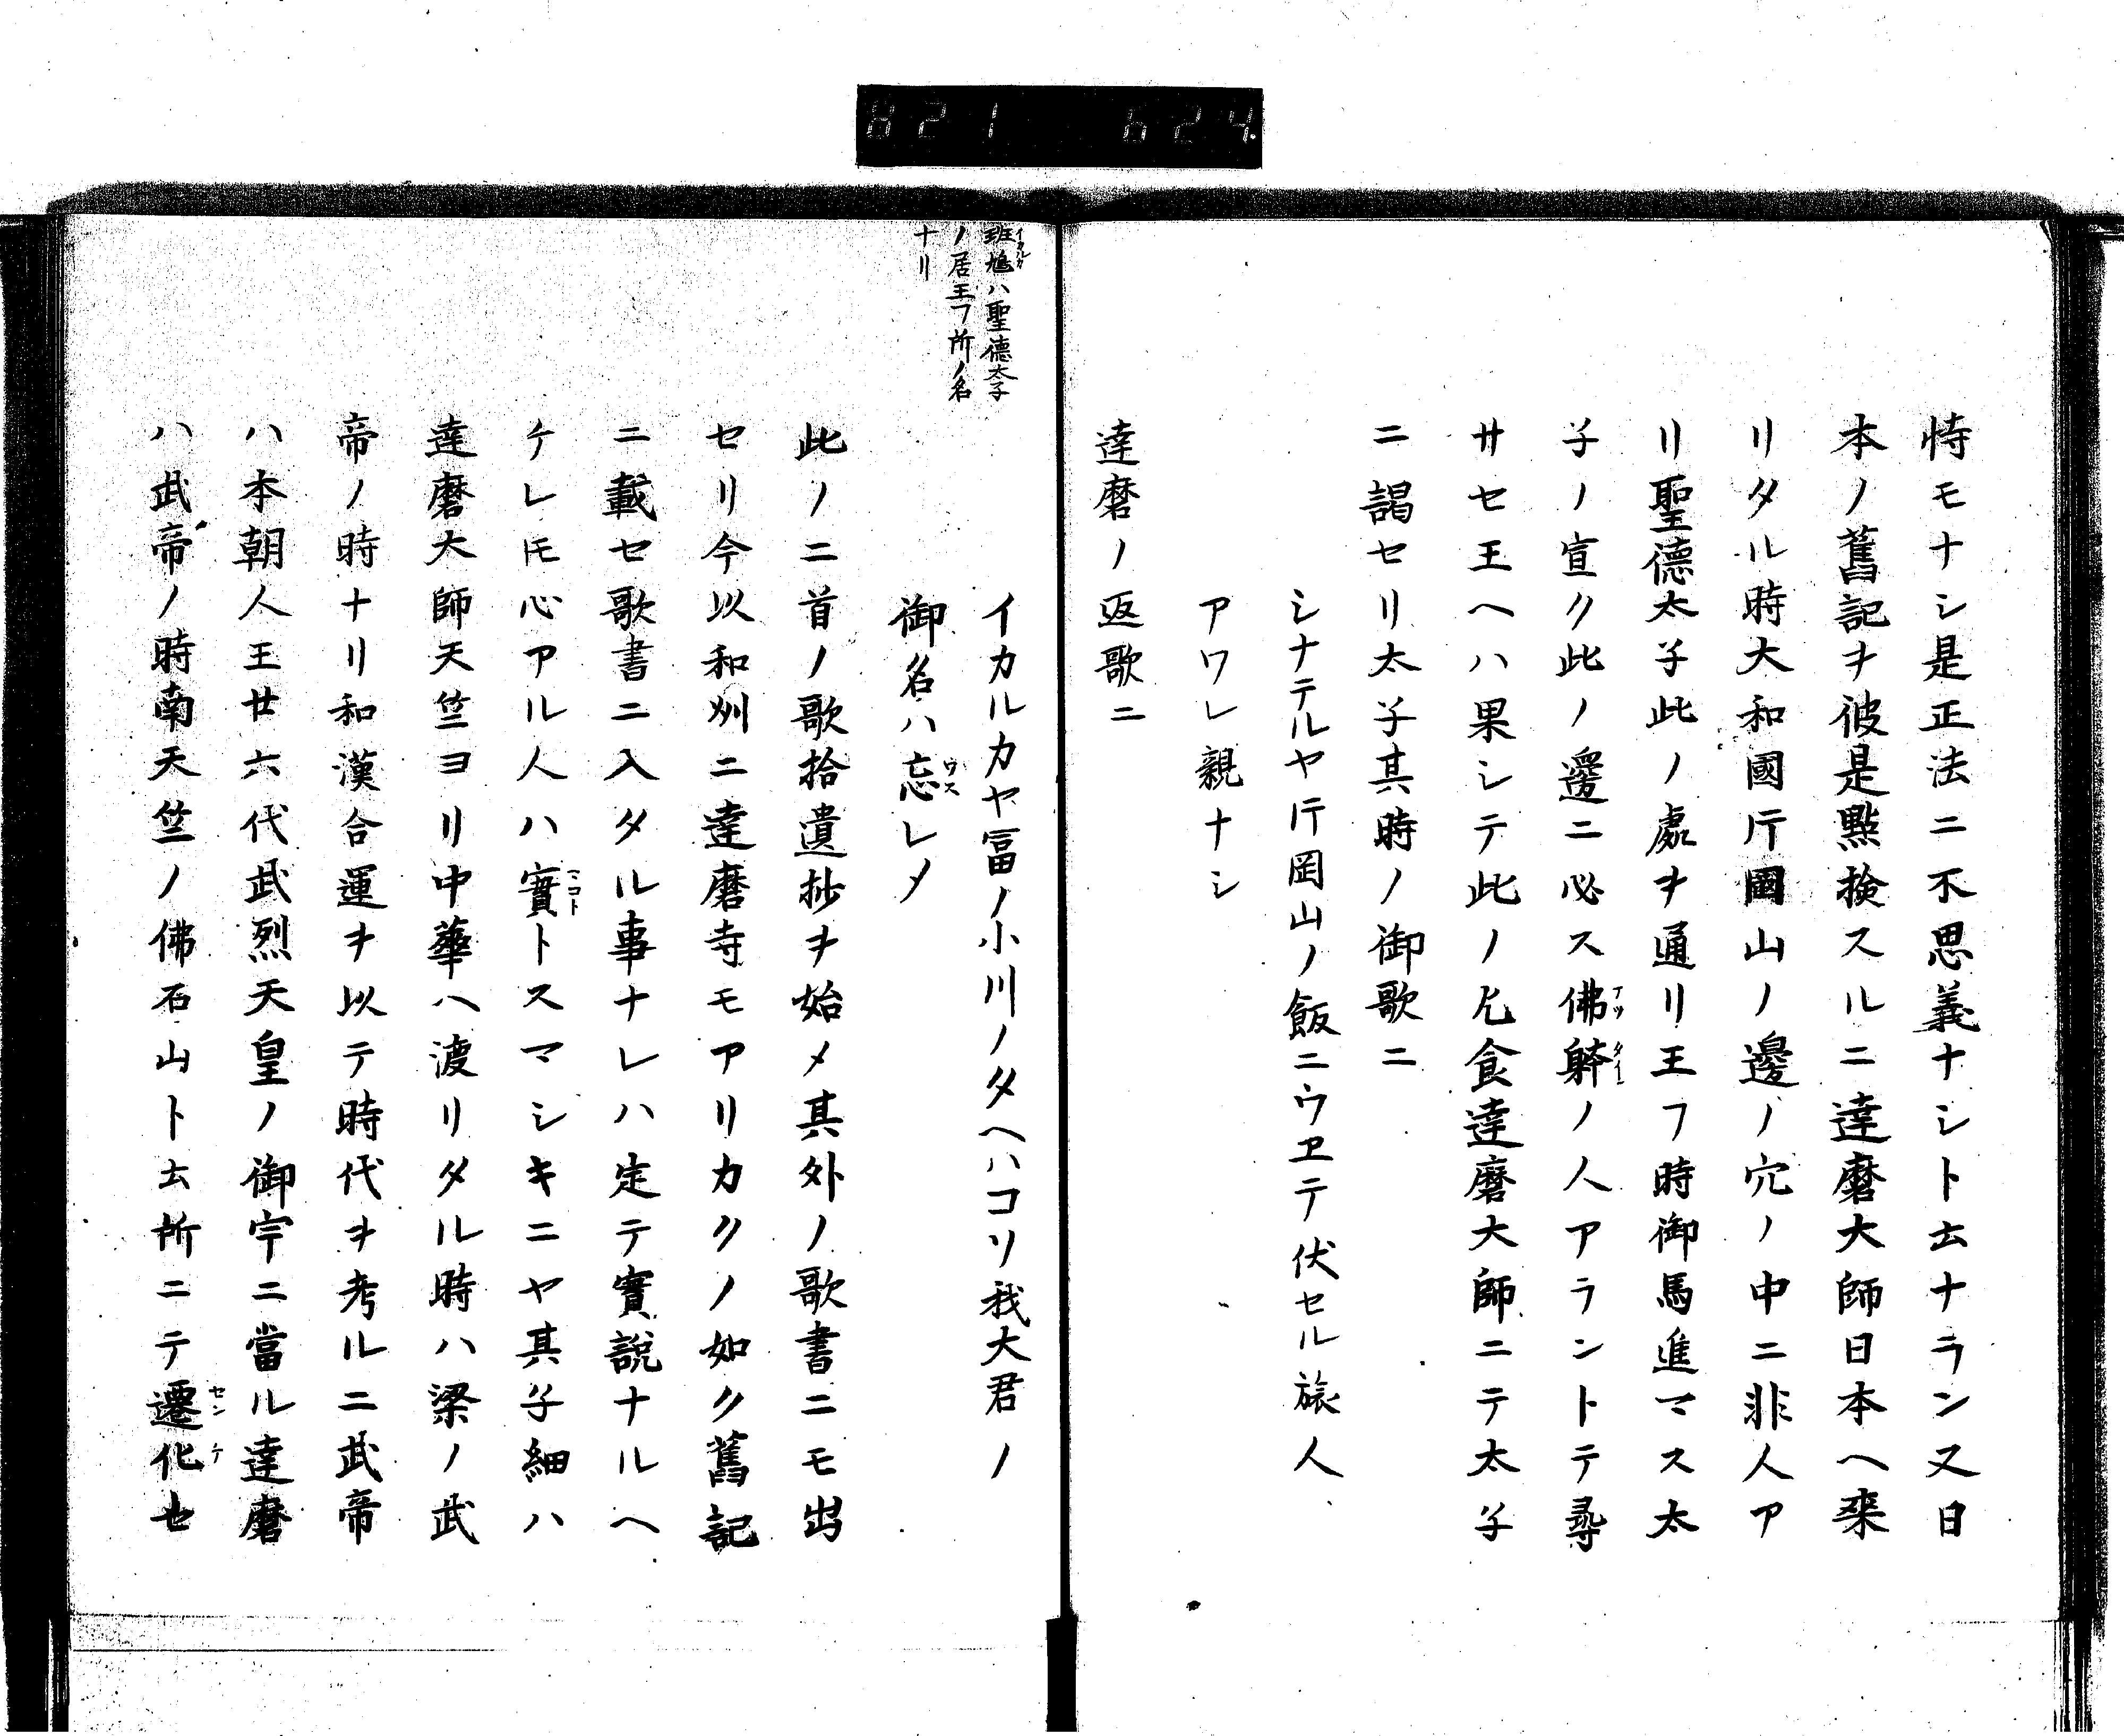 821 624.
恃モナシ是正法ニ不思義ナシト云ナラン又日
本ノ舊記ヲ彼是點撿スルニ達磨大師日本ヘ来
リタル時大和國片國山ノ邊ノ穴ノ中ニ非人ア
リ聖德太子此ノ處ヲ通リ王フ時御馬進マス太
子ノ宣ク此ノ邊ニ必ス佛躰ノ人アラントテ尋
サセ王ヘハ果シテ此ノ乞食達磨大師ニテ太子
ニ謁セリ太子其時ノ御歌ニ
シナテルヤ片岡山ノ飯ニウヱテ伏セル旅人
アワレ親ナシ
達磨ノ返歌ニ
イカルカヤ冨ノ小川ノタヘハコソ我大君ノ
御名ハ忘レメ
班鳩ハ聖德太子
ノ居王フ所ノ名
ナリ
此ノ二首ノ歌拾遺抄ヲ始メ其外ノ歌書ニモ出
セリ今以和州ニ達磨寺モアリカクノ如ク舊記
ニ載セ歌書ニ入タル事ナレハ定テ實說ナルヘ
ケレ𪜈心アル人ハ實トスマシキニヤ其子細ハ
達磨大師天竺ヨリ中華ヘ渡リタル時ハ梁ノ武
帝ノ時ナリ和漢合運ヲ以テ時代ヲ考ルニ武帝
ハ本朝人王廿六代武烈天皇ノ御宇ニ當ル達磨
ハ武帝ノ時南天竺ノ佛石山ト云所ニテ遷化セ